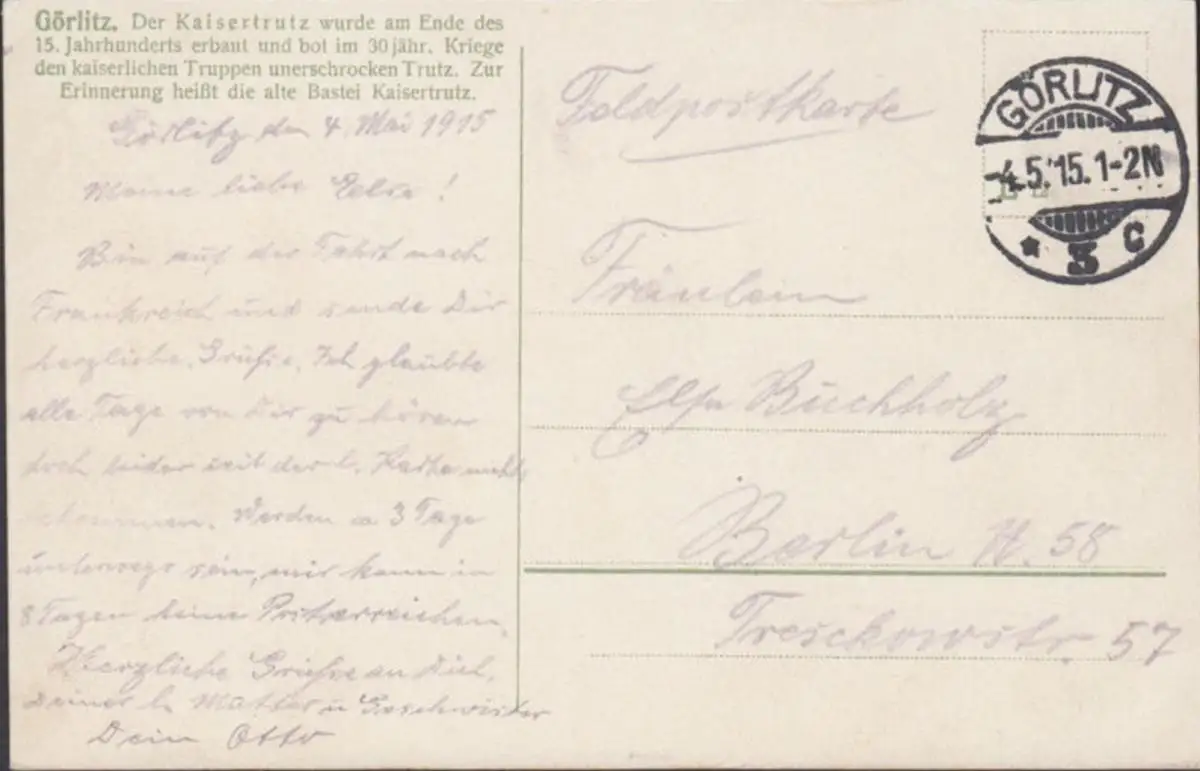 Görlitz. Der Kaisertrutz wurde am Ende des
15. Jahrhunderts erbaut und bot im 30 jähr. Kriege
den kaiserlichen Truppen unerschrocken Trutz. Zur
Erinnerung heißt die alte Bastei Kaisertrutz.
Görlitz den 4. Mai 1915
Meine liebe Else!
Bin auf der Fahrt nach
Frankreich und sende Dir
herzliche Grüße. Ich glaubte
alle Tage von Dir zu hören
doch leider seit der l. Karte nichts
bekommen. Werden ca 3 Tage
unterwegs sein, mir kann in
8 Tagen keine Post erreichen.
Herzliche Grüße an Dich,
Deiner l. Mutter u Geschwister
Dein Otto
Feldpostkarte
GÖRLITZ
-4.5.15.1-2N
* 3 c
Fräulein
Else Buchholz
Berlin N. 58
Tresckowstr. 57